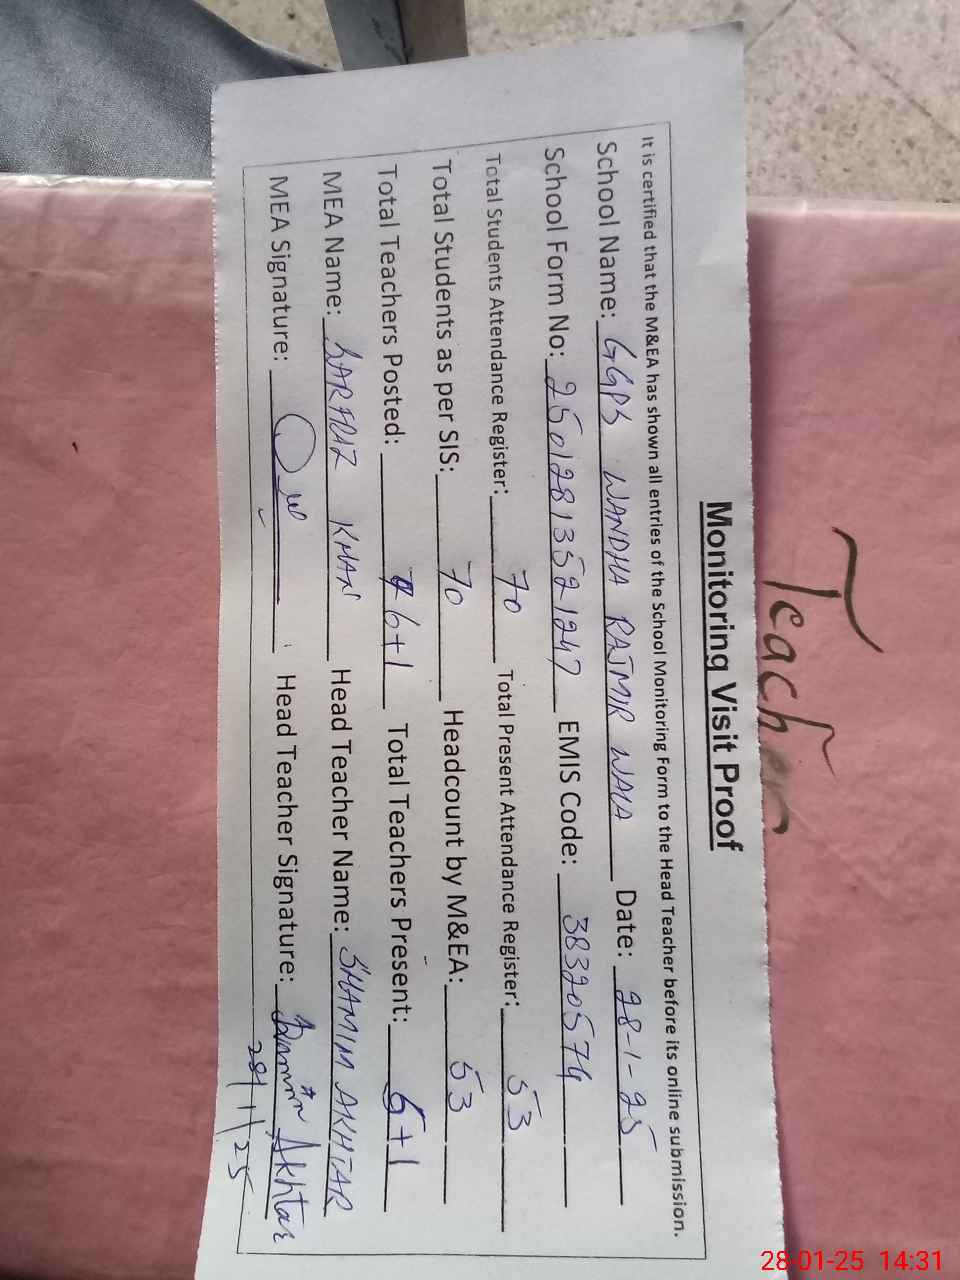 Teacher
Monitoring Visit Proof
It is certified that the M&EA has shown all entries of the School Monitoring Form to the Head Teacher before its online submission.
School Name: GGPS WANDHA RAJMIR WALA Date: 28-1-25
School Form No: 25012813521247 EMIS Code: 38320574
Total Students Attendance Register: 70 Total Present Attendance Register: 53
Total Students as per SIS: 70 Headcount by M&EA: 53
Total Teachers Posted: 6+1 Total Teachers Present: 6+1
MEA Name: SARFRAZ KHAN Head Teacher Name: SHAMIM AKHTAR
MEA Signature: Head Teacher Signature: Shamim Akhtar
28/1/25
28-01-25 14:31